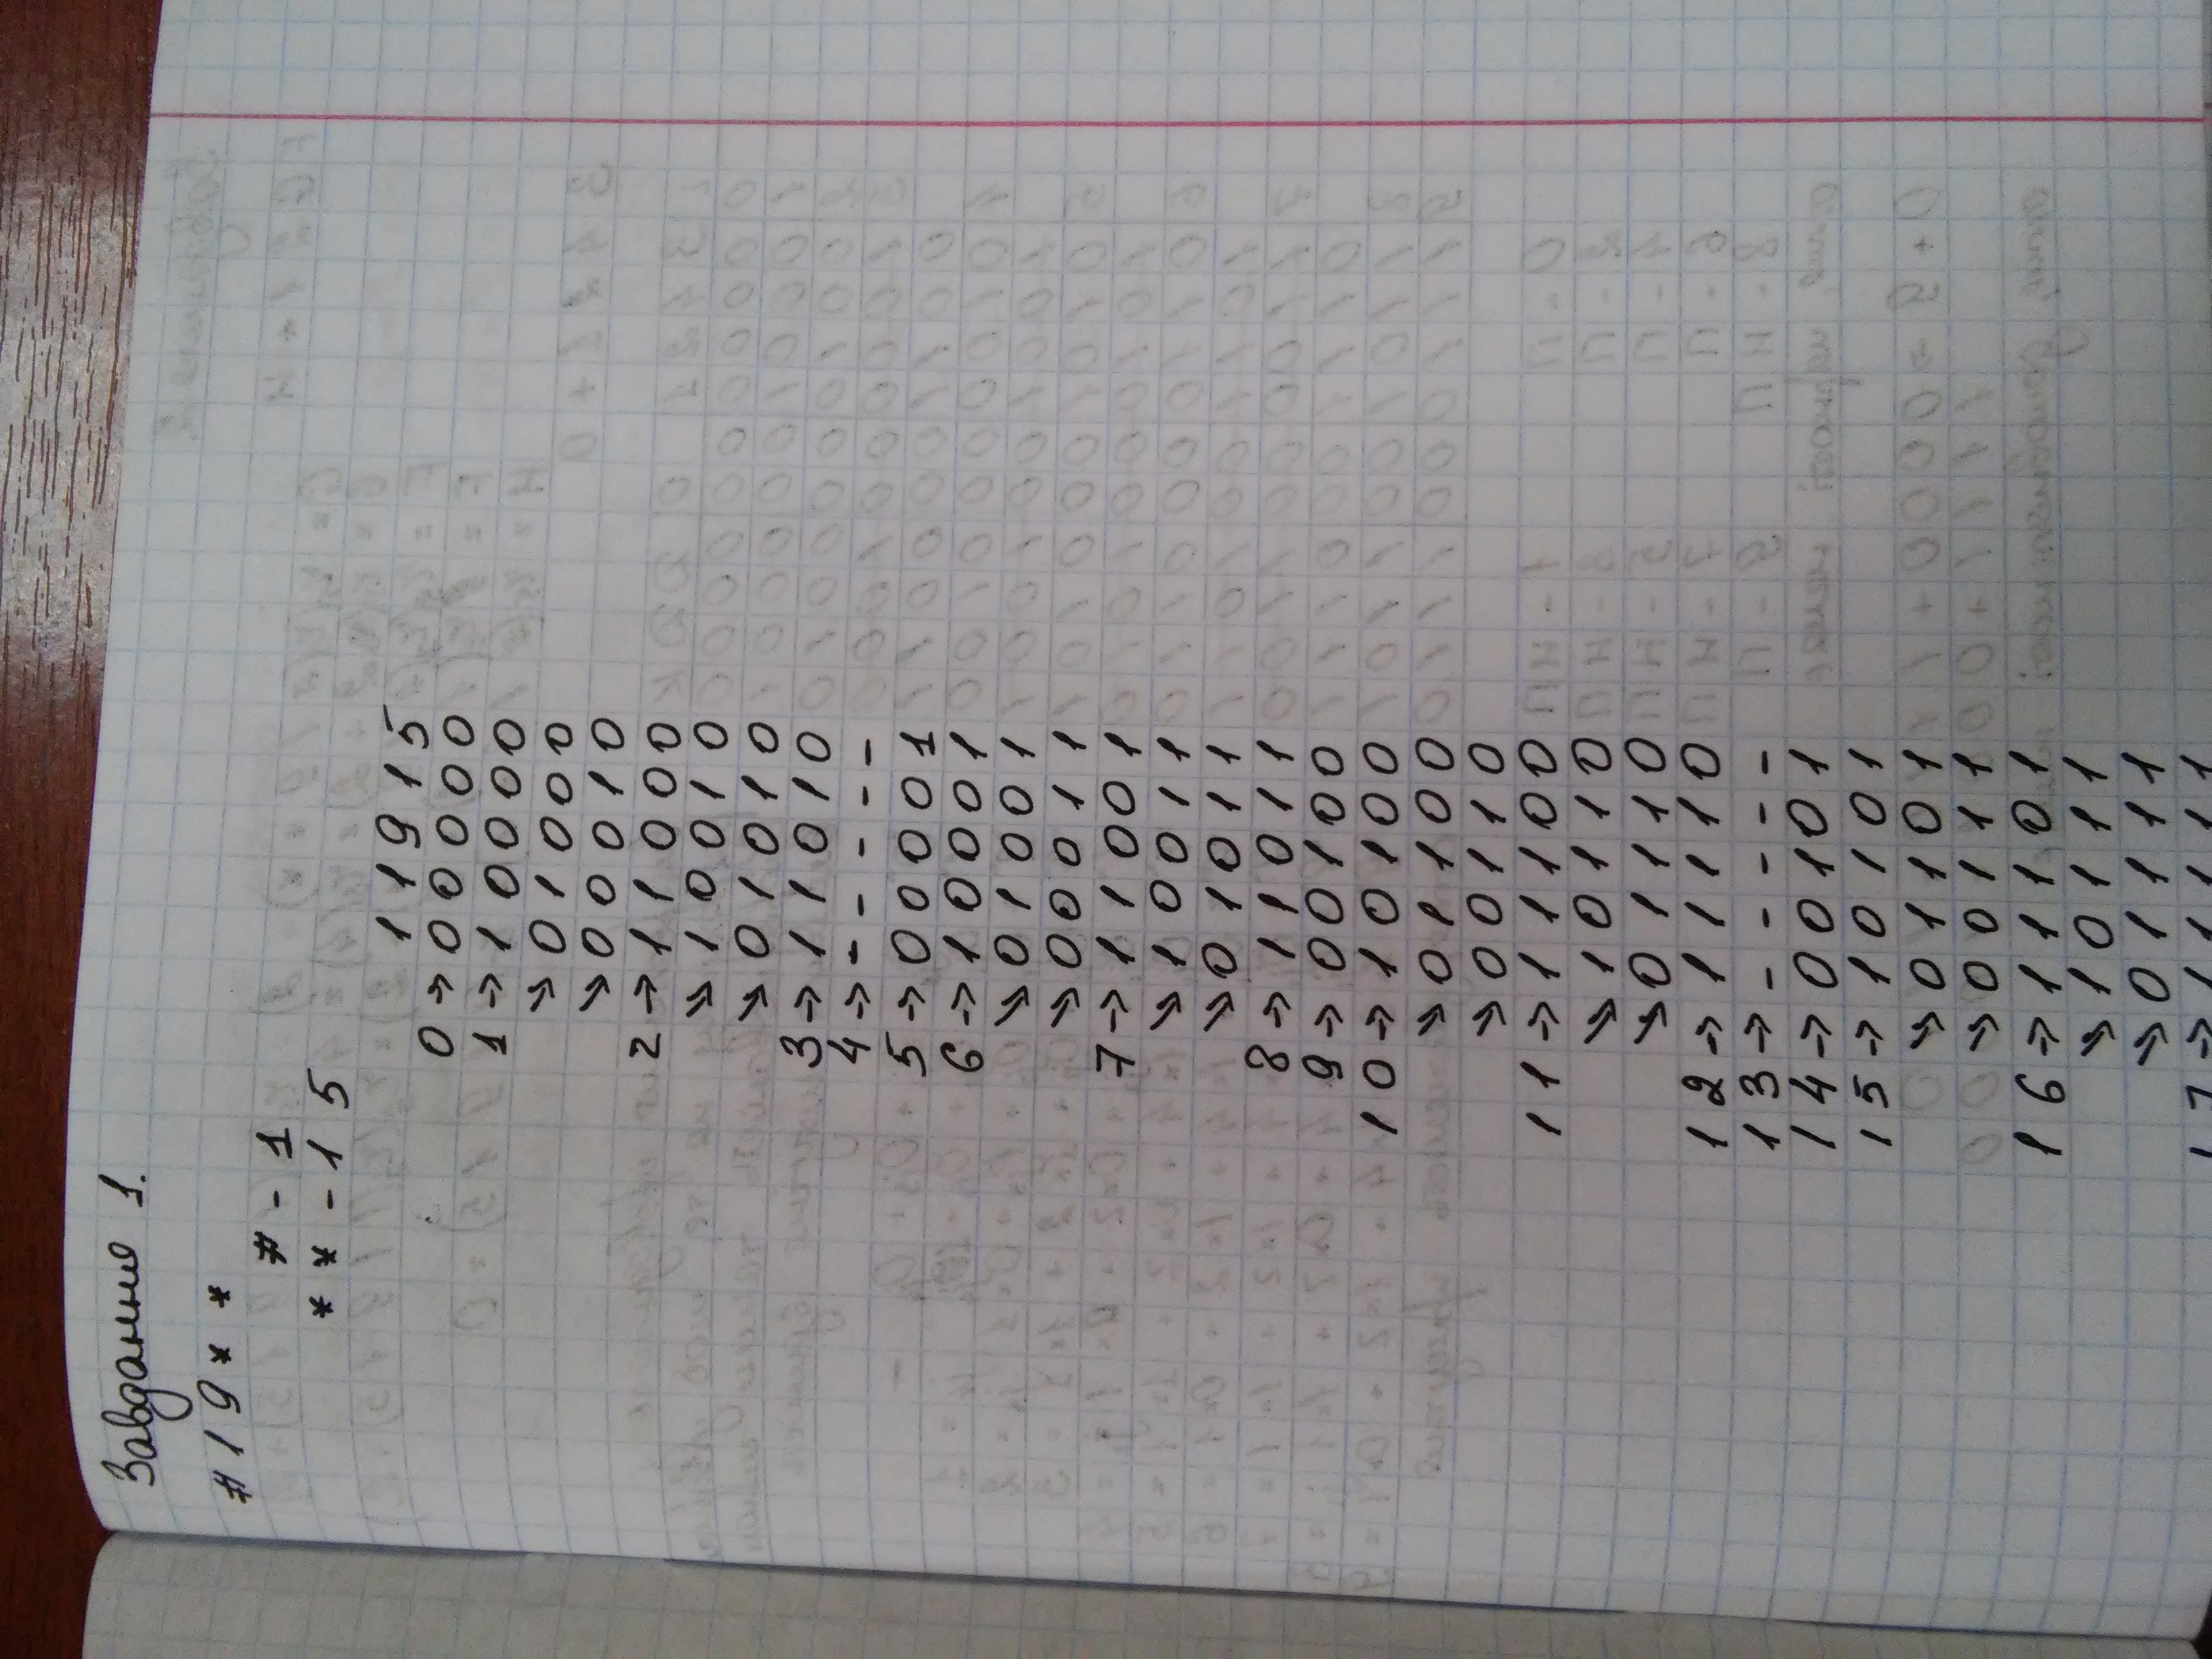 Завдання 1.
#19**
# - 1
** - 15
11915
0 → 00000
1 → 10000
↘ 01000
↘ 00010
2 → 11000
↘ 10010
↘ 01010
3 → 11010
4 → - - - - -
5 → 00001
6 → 10001
↘ 01001
↘ 00011
7 → 11001
↘ 10011
↘ 01011
8 → 11011
9 → 00100
10 → 10100
↘ 01100
↘ 00110
11 → 11100
↘ 10110
↘ 01110
12 → 11110
13 → - - - - -
14 → 00101
15 → 10101
↘ 01101
↘ 00111
16 → 11101
↘ 10111
↘ 01111
17 → 11111